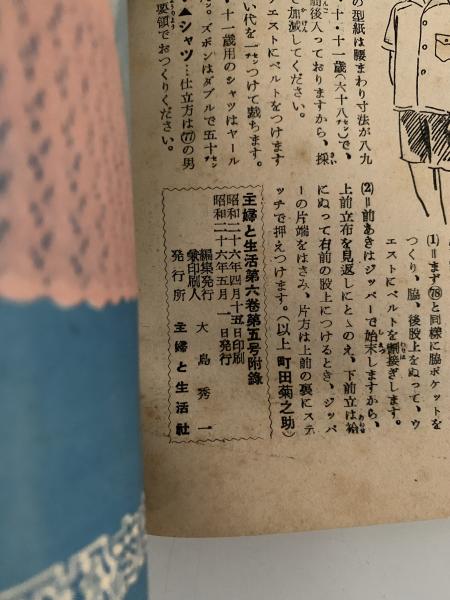 の型紙は腰まわり寸法が八九
・十・十一歳(六十八センチ)で、
前後入っておりますから、採
加減してください。
エストにベルトをつけます
い代を一センチつけて裁ちます。
・十一歳用のシャツはヤール
ズボンはダブルで五十センチ
▲シャツ…仕立方は(77)の男
要領でおつくりください。
(1)=まず(78)と同様に脇ポケットを
つくり、脇、後股上をぬって、ウ
エストにベルトを割接ぎします。
(2)=前あきはジッパーで始末しますから、
上前立布を見返しにとゝのえ、下前立は袷
にぬって右前の股上につけるとき、ジッパ
ーの片端をはさみ、片方は上前の裏にステ
ッチで押えつけます。(以上 町田菊之助)
主婦と生活第六巻第五号附録
昭和二十六年四月十五日印刷
昭和二十六年五月一日発行
編集発行兼印刷人 大島秀一
発行所 主婦と生活社